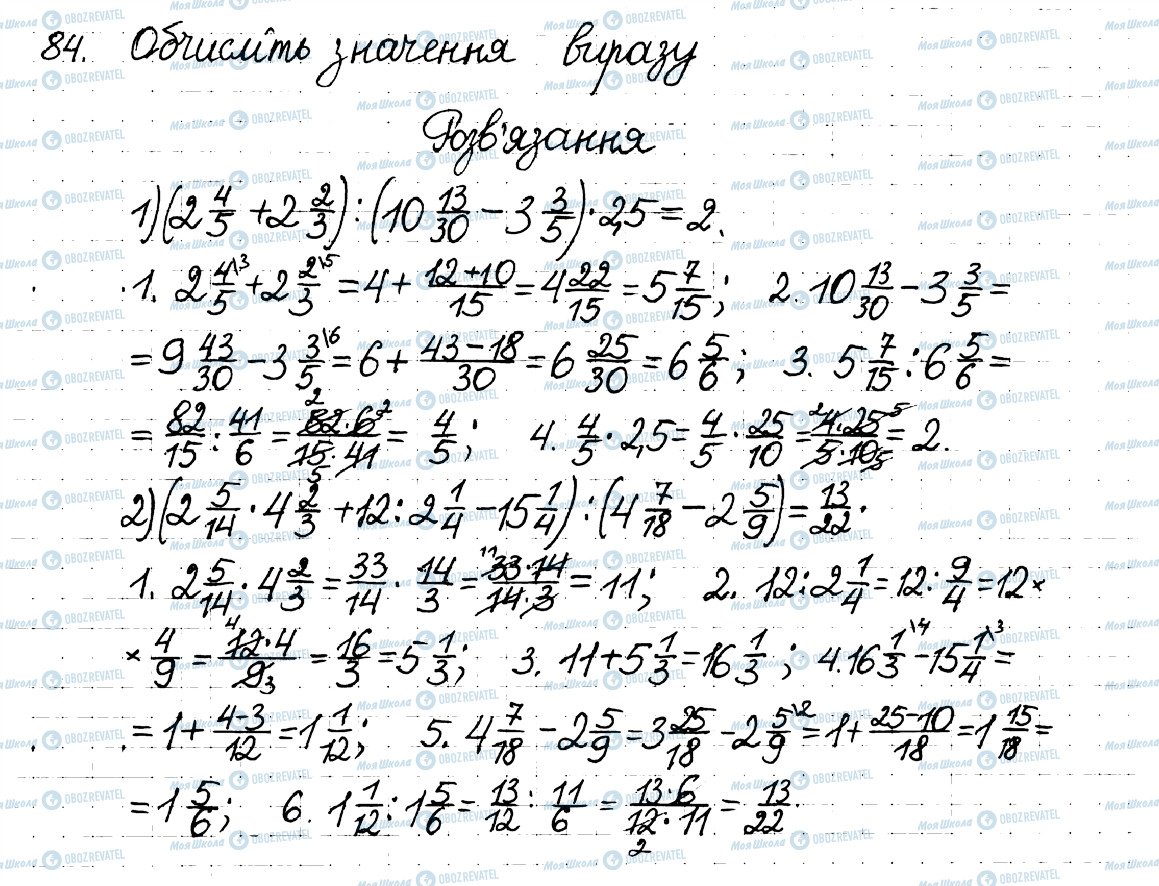 84. Обчисліть значення виразу
Розв'язання
1) (2 4/5 + 2 2/3) : (10 13/30 − 3 3/5) · 2,5 = 2.
1. 2 4/5\3 + 2 2/3\5 = 4 + (12+10)/15 = 4 22/15 = 5 7/15; 2. 10 13/30 − 3 3/5 =
= 9 43/30 − 3 3/5\6 = 6 + (43−18)/30 = 6 25/30 = 6 5/6; 3. 5 7/15 : 6 5/6 =
= 82/15 : 41/6 = (82·6)/(15·41) = 4/5; 4. 4/5 · 2,5 = 4/5 · 25/10 = (4·25)/(5·10) = 2.
2) (2 5/14 · 4 2/3 + 12 : 2 1/4 − 15 1/4) : (4 7/18 − 2 5/9) = 13/22.
1. 2 5/14 · 4 2/3 = 33/14 · 14/3 = (33·14)/(14·3) = 11; 2. 12 : 2 1/4 = 12 : 9/4 = 12 ×
× 4/9 = (12·4)/9 = 16/3 = 5 1/3; 3. 11 + 5 1/3 = 16 1/3; 4. 16 1/3\4 − 15 1/4\3 =
= 1 + (4−3)/12 = 1 1/12; 5. 4 7/18 − 2 5/9 = 3 25/18 − 2 5/9\2 = 1 + (25−10)/18 = 1 15/18 =
= 1 5/6; 6. 1 1/12 : 1 5/6 = 13/12 : 11/6 = (13·6)/(12·11) = 13/22.